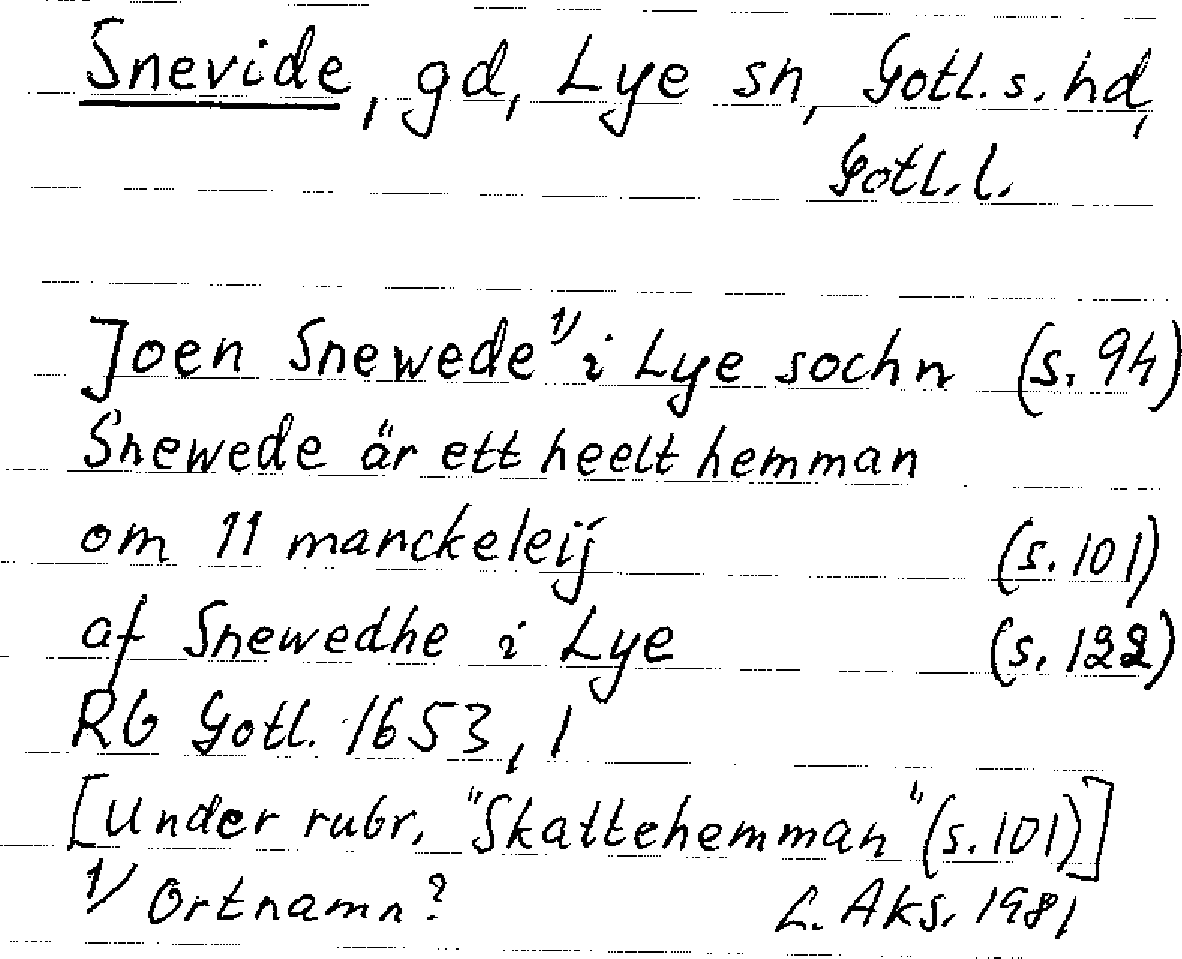 Snevide, gd, Lye sn, Gotl. s. hd,
Gotl. l.
Joen Snewede 1/ i Lye sochn (s. 94)
Snewede är ett heelt hemman
om 11 manckeleij (s. 101)
af Snewedhe i Lye (s. 122)
RG Gotl. 1653, 1
[Under rubr. "Skattehemman" (s. 101)]
1/ Ortnamn? L. Aks. 1981